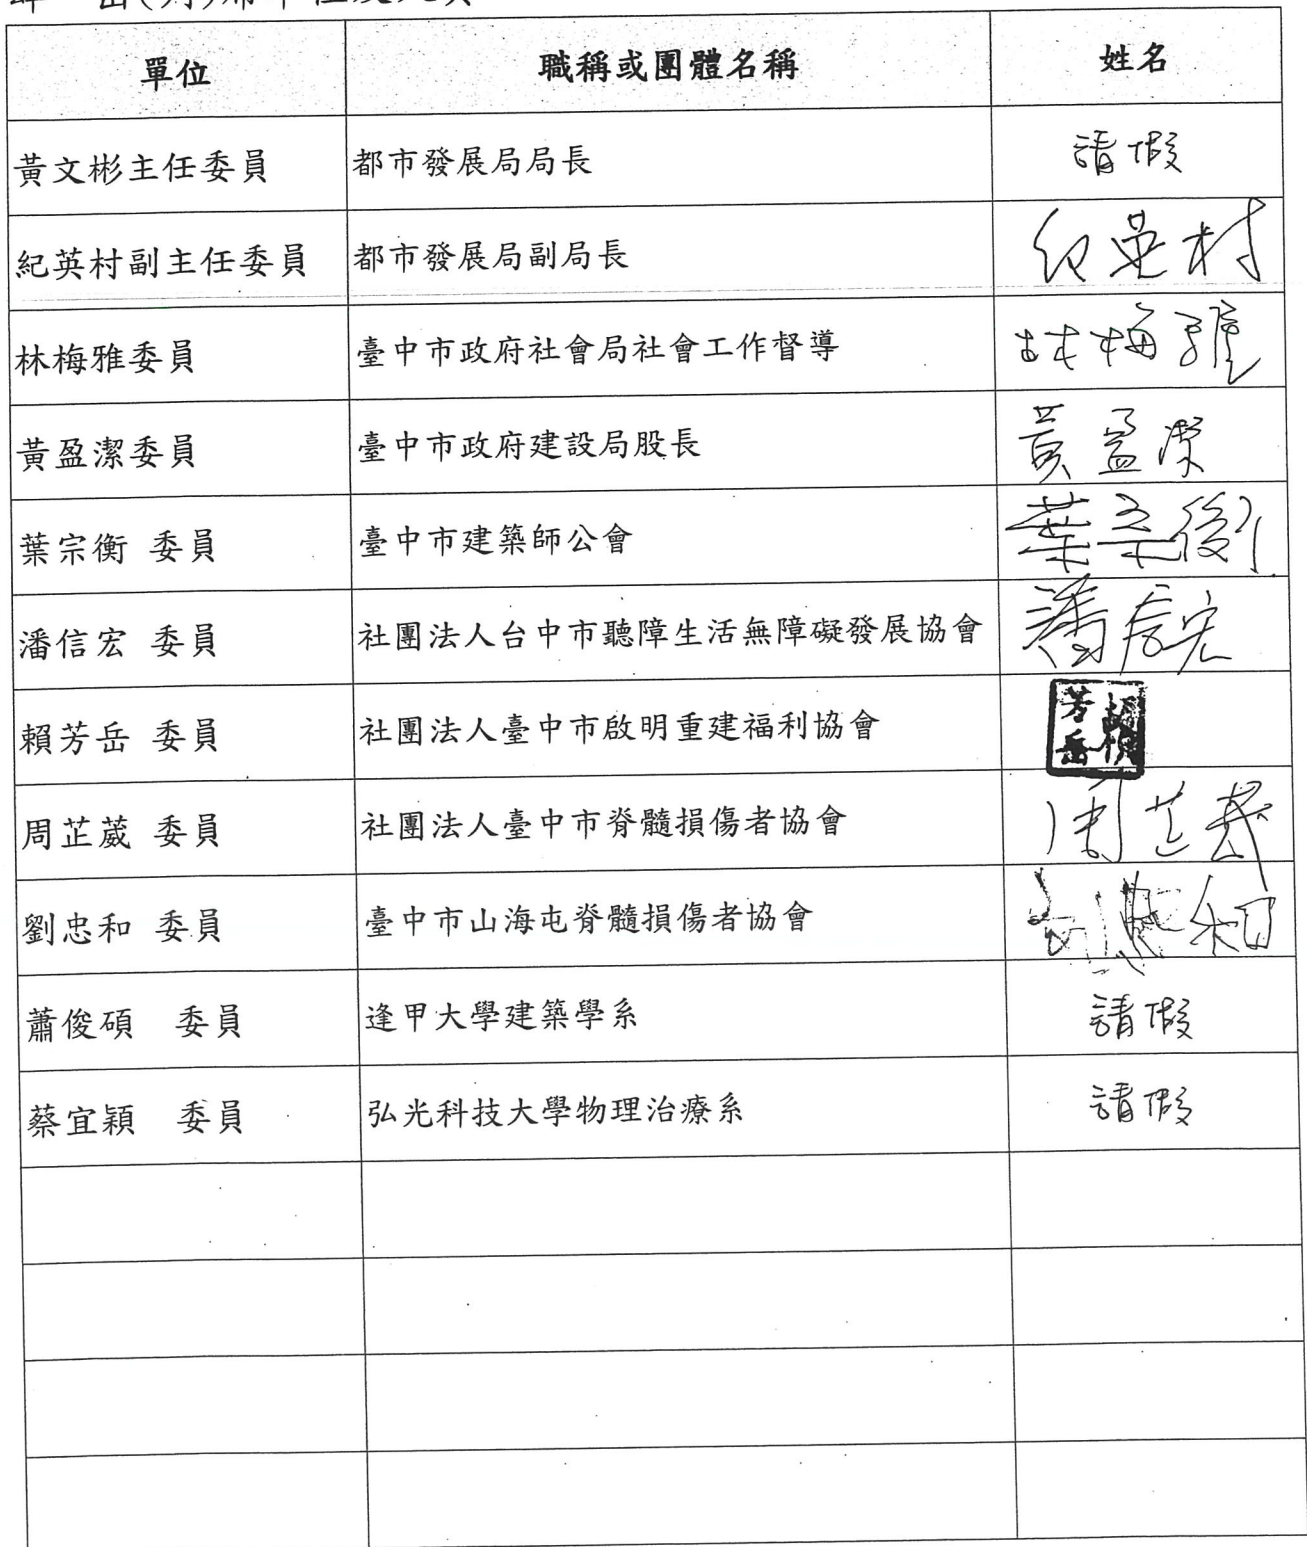 單位 職稱或團體名稱 姓名
黃文彬主任委員 都市發展局局長 請假
紀英村副主任委員 都市發展局副局長 紀英村
林梅雅委員 臺中市政府社會局社會工作督導 林梅雅
黃盈潔委員 臺中市政府建設局股長 黃盈潔
葉宗衡 委員 臺中市建築師公會 葉宗衡
潘信宏 委員 社團法人台中市聽障生活無障礙發展協會 潘信宏
賴芳岳 委員 社團法人臺中市啟明重建福利協會 賴芳岳
周芷葳 委員 社團法人臺中市脊髓損傷者協會 周芷葳
劉忠和 委員 臺中市山海屯脊髓損傷者協會 劉忠和
蕭俊碩 委員 逢甲大學建築學系 請假
蔡宜穎 委員 弘光科技大學物理治療系 請假